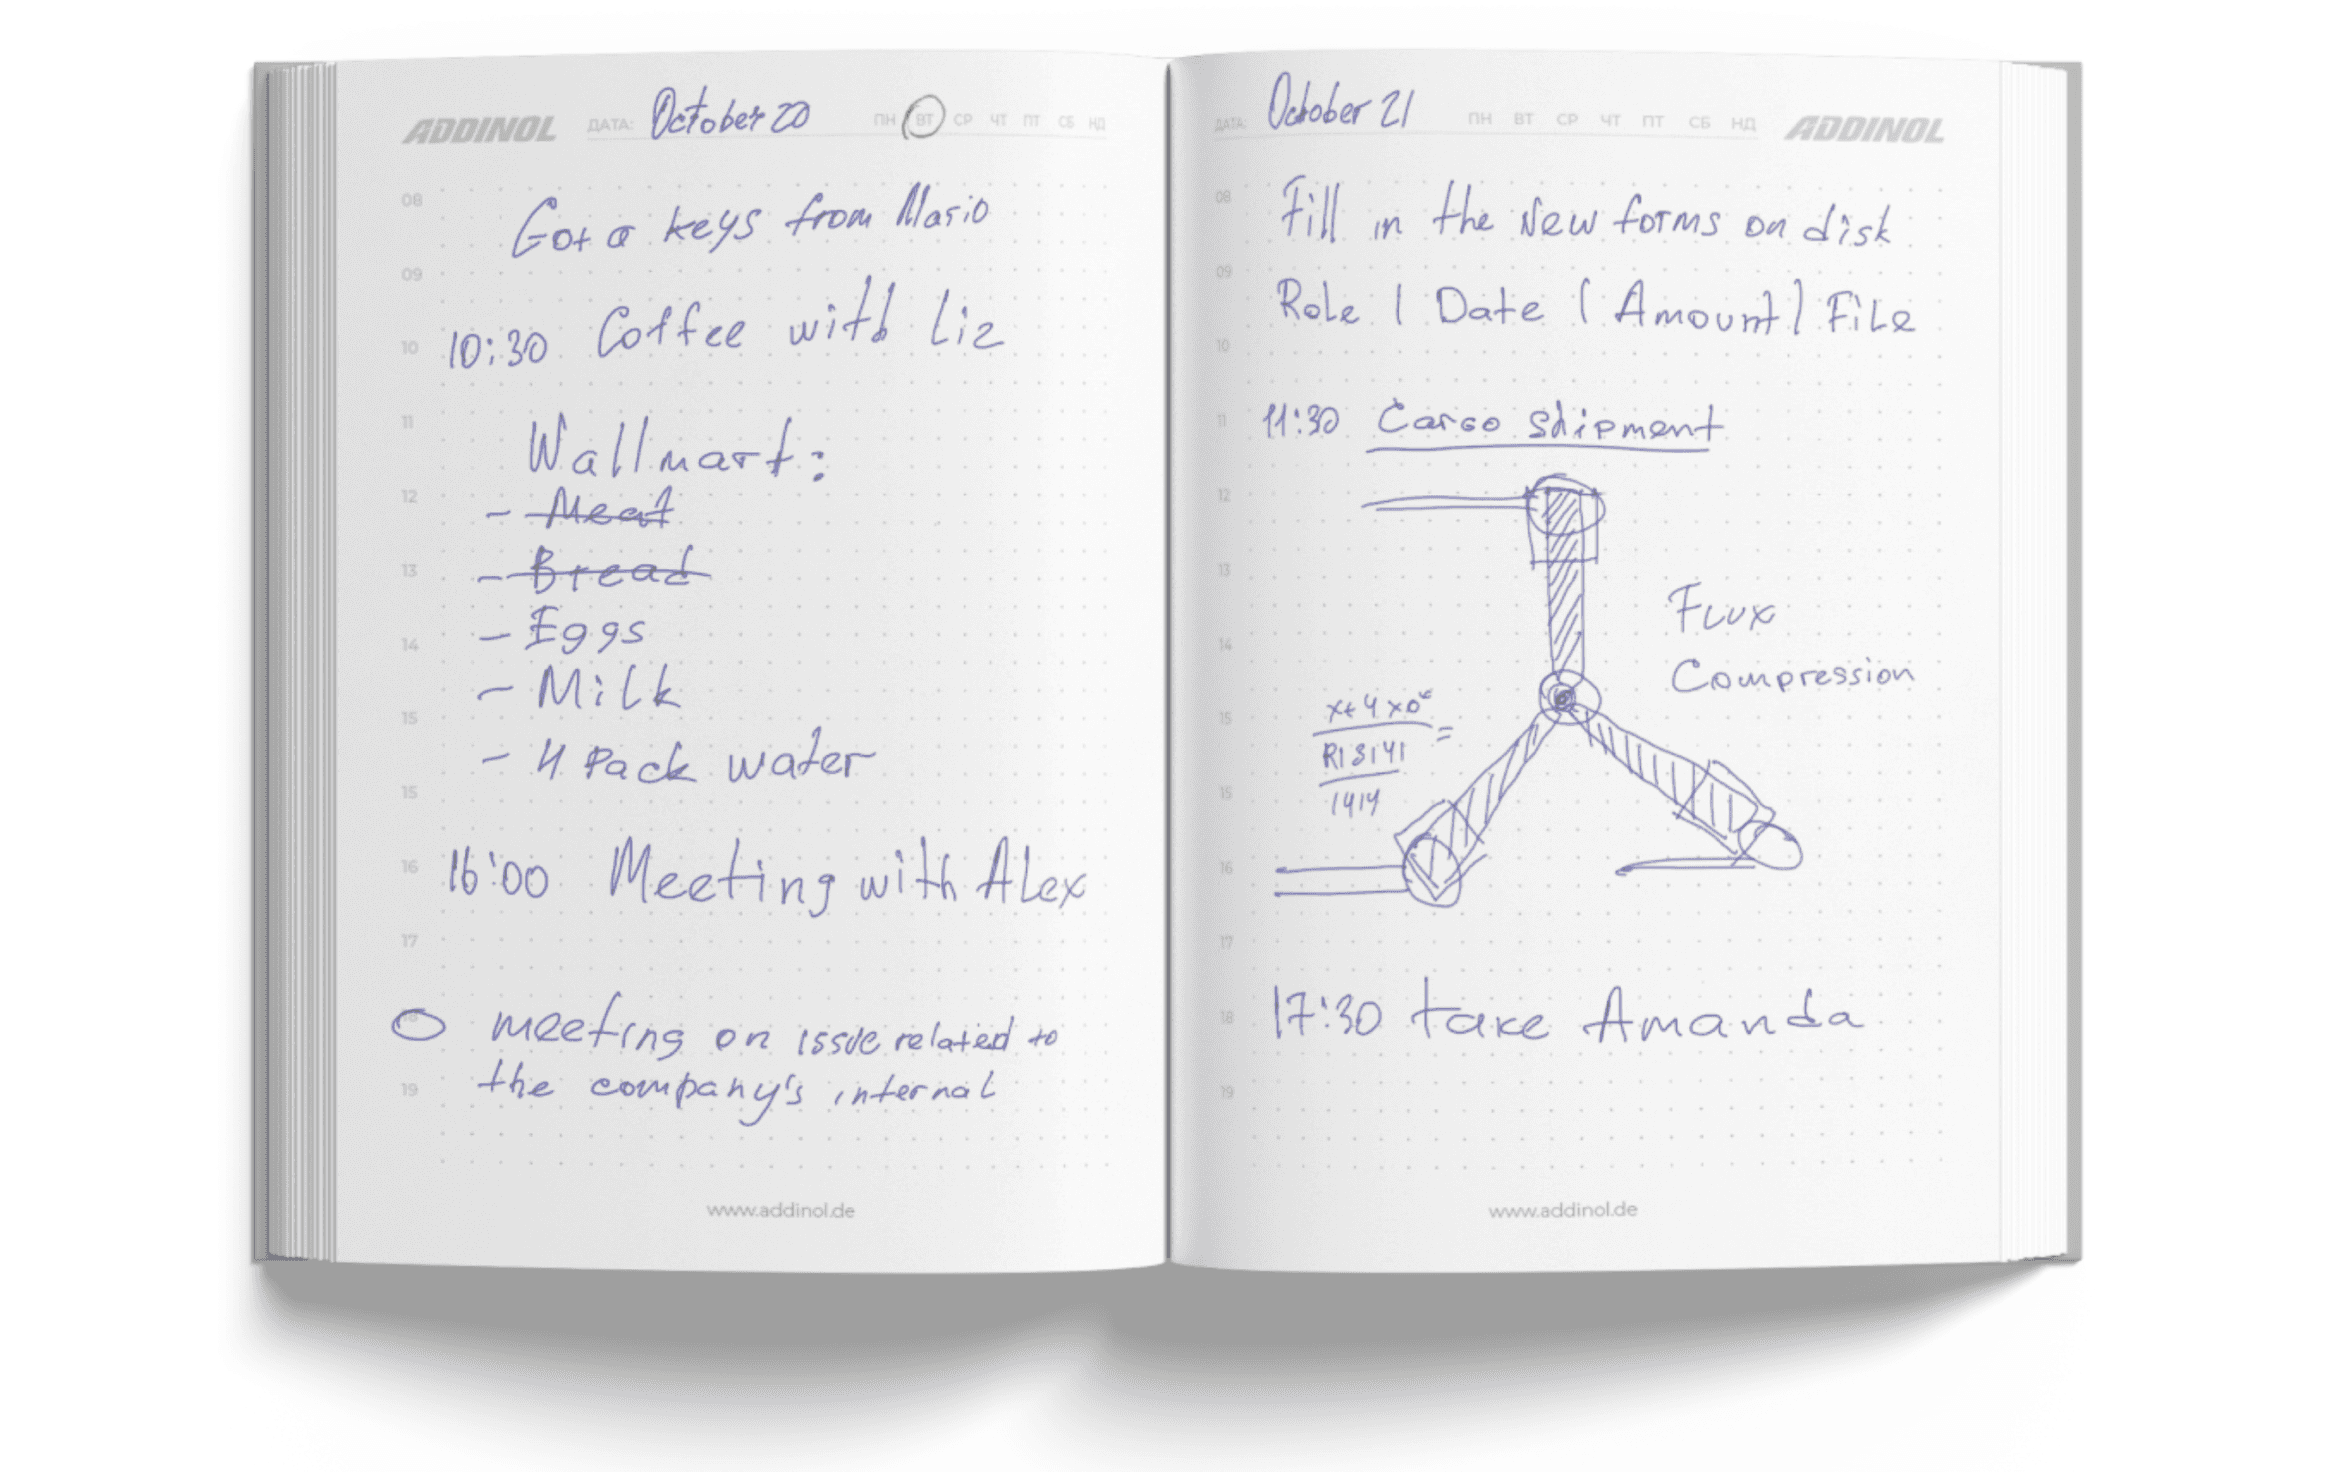 ADDINOL ДАТА: October 20 ПН ВТ СР ЧТ ПТ СБ НД
08
Got a keys from Mario
09
10:30 Coffee with Liz
10
11
Wallmart:
12
- Meat
13
- Bread
- Eggs
14
- Milk
15
- 4 Pack water
15
16
16:00 Meeting with Alex
17
18
meeting on issue related to
the company's internal
19
www.addinol.de
ДАТА: October 21 ПН ВТ СР ЧТ ПТ СБ НД ADDINOL
08
Fill in the New forms on disk
09
Role | Date | Amount | File
10
11
11:30 Cargo shipment
12
13
Flux
14
Compression
15
1414
15
16
17
17:30 take Amanda
18
19
www.addinol.de